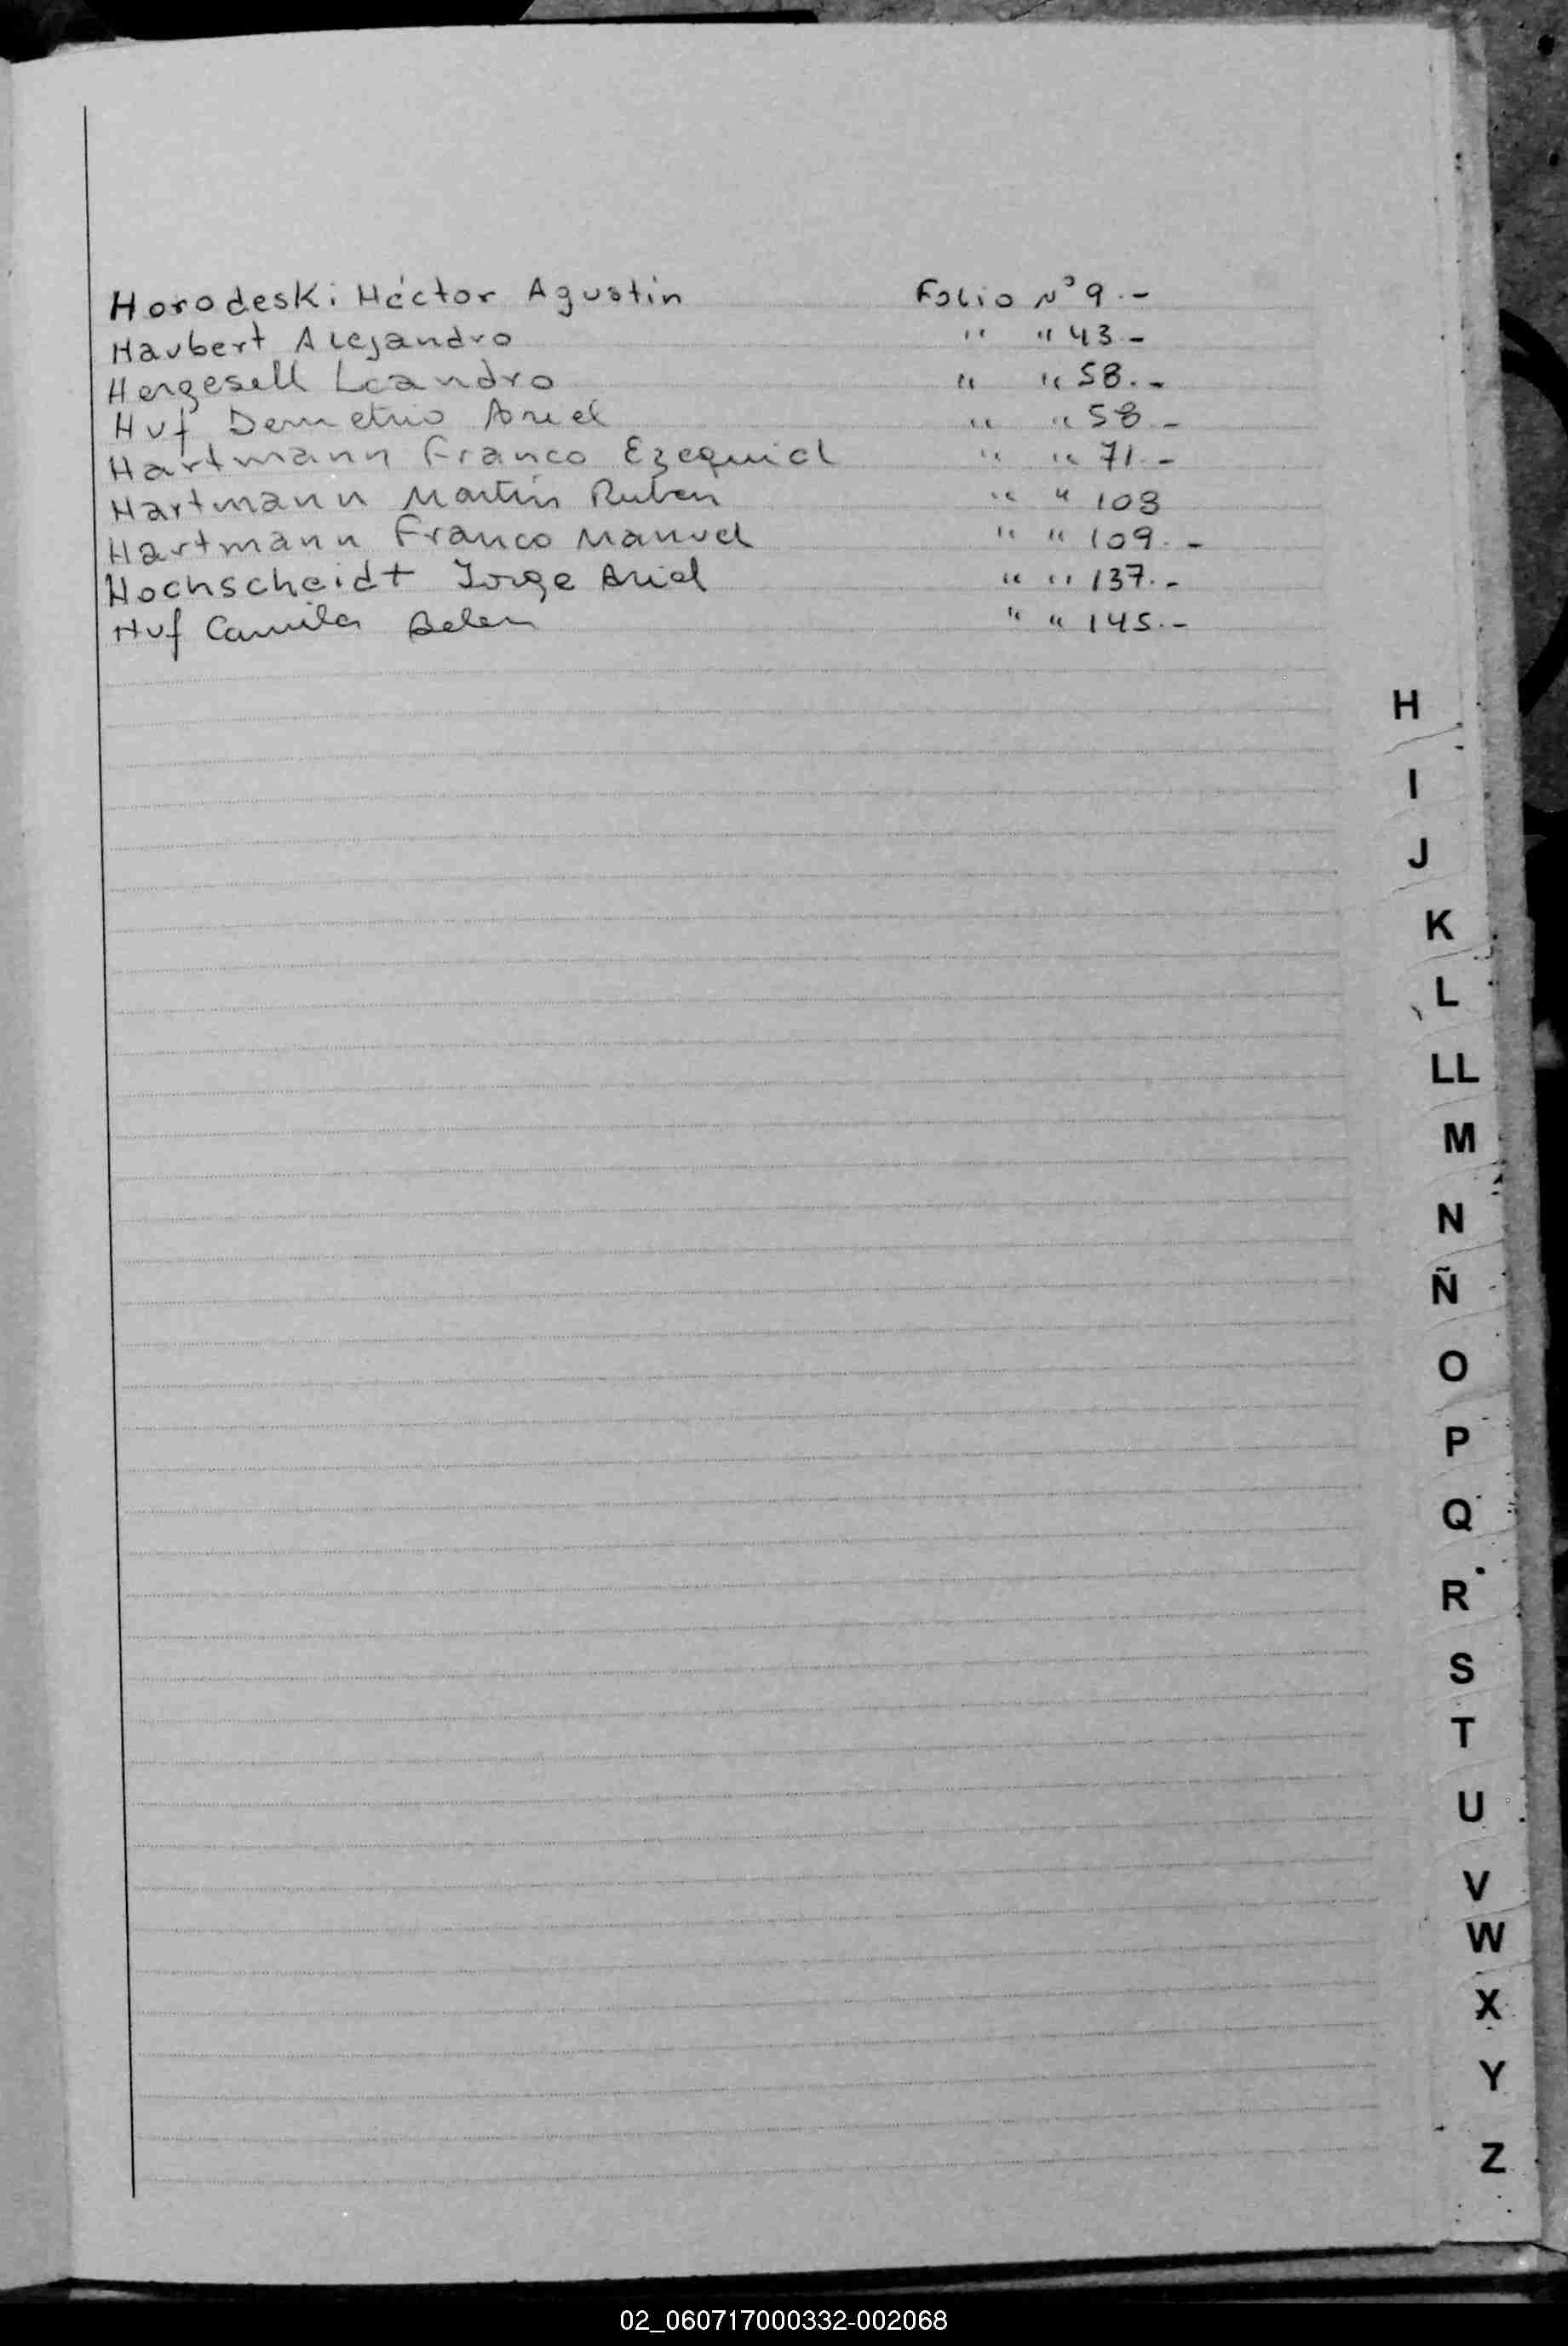 Horodeski Héctor Agustin Folio Nº 9.-
Haubert Alejandro " " 43.-
Hergesell Leandro " " 58.-
Huf Demetrio Ariel " " 58.-
Hartmann Franco Ezequiel " " 71.-
Hartmann Martin Ruben " " 108
Hartmann Franco Manuel " " 109.-
Hochscheidt Jorge Ariel " " 137.-
Huf Camila Belen " " 145.-
H
I
J
K
L
LL
M
N
Ñ
O
P
Q
R
S
T
U
V
W
X
Y
Z
02_060717000332-002068